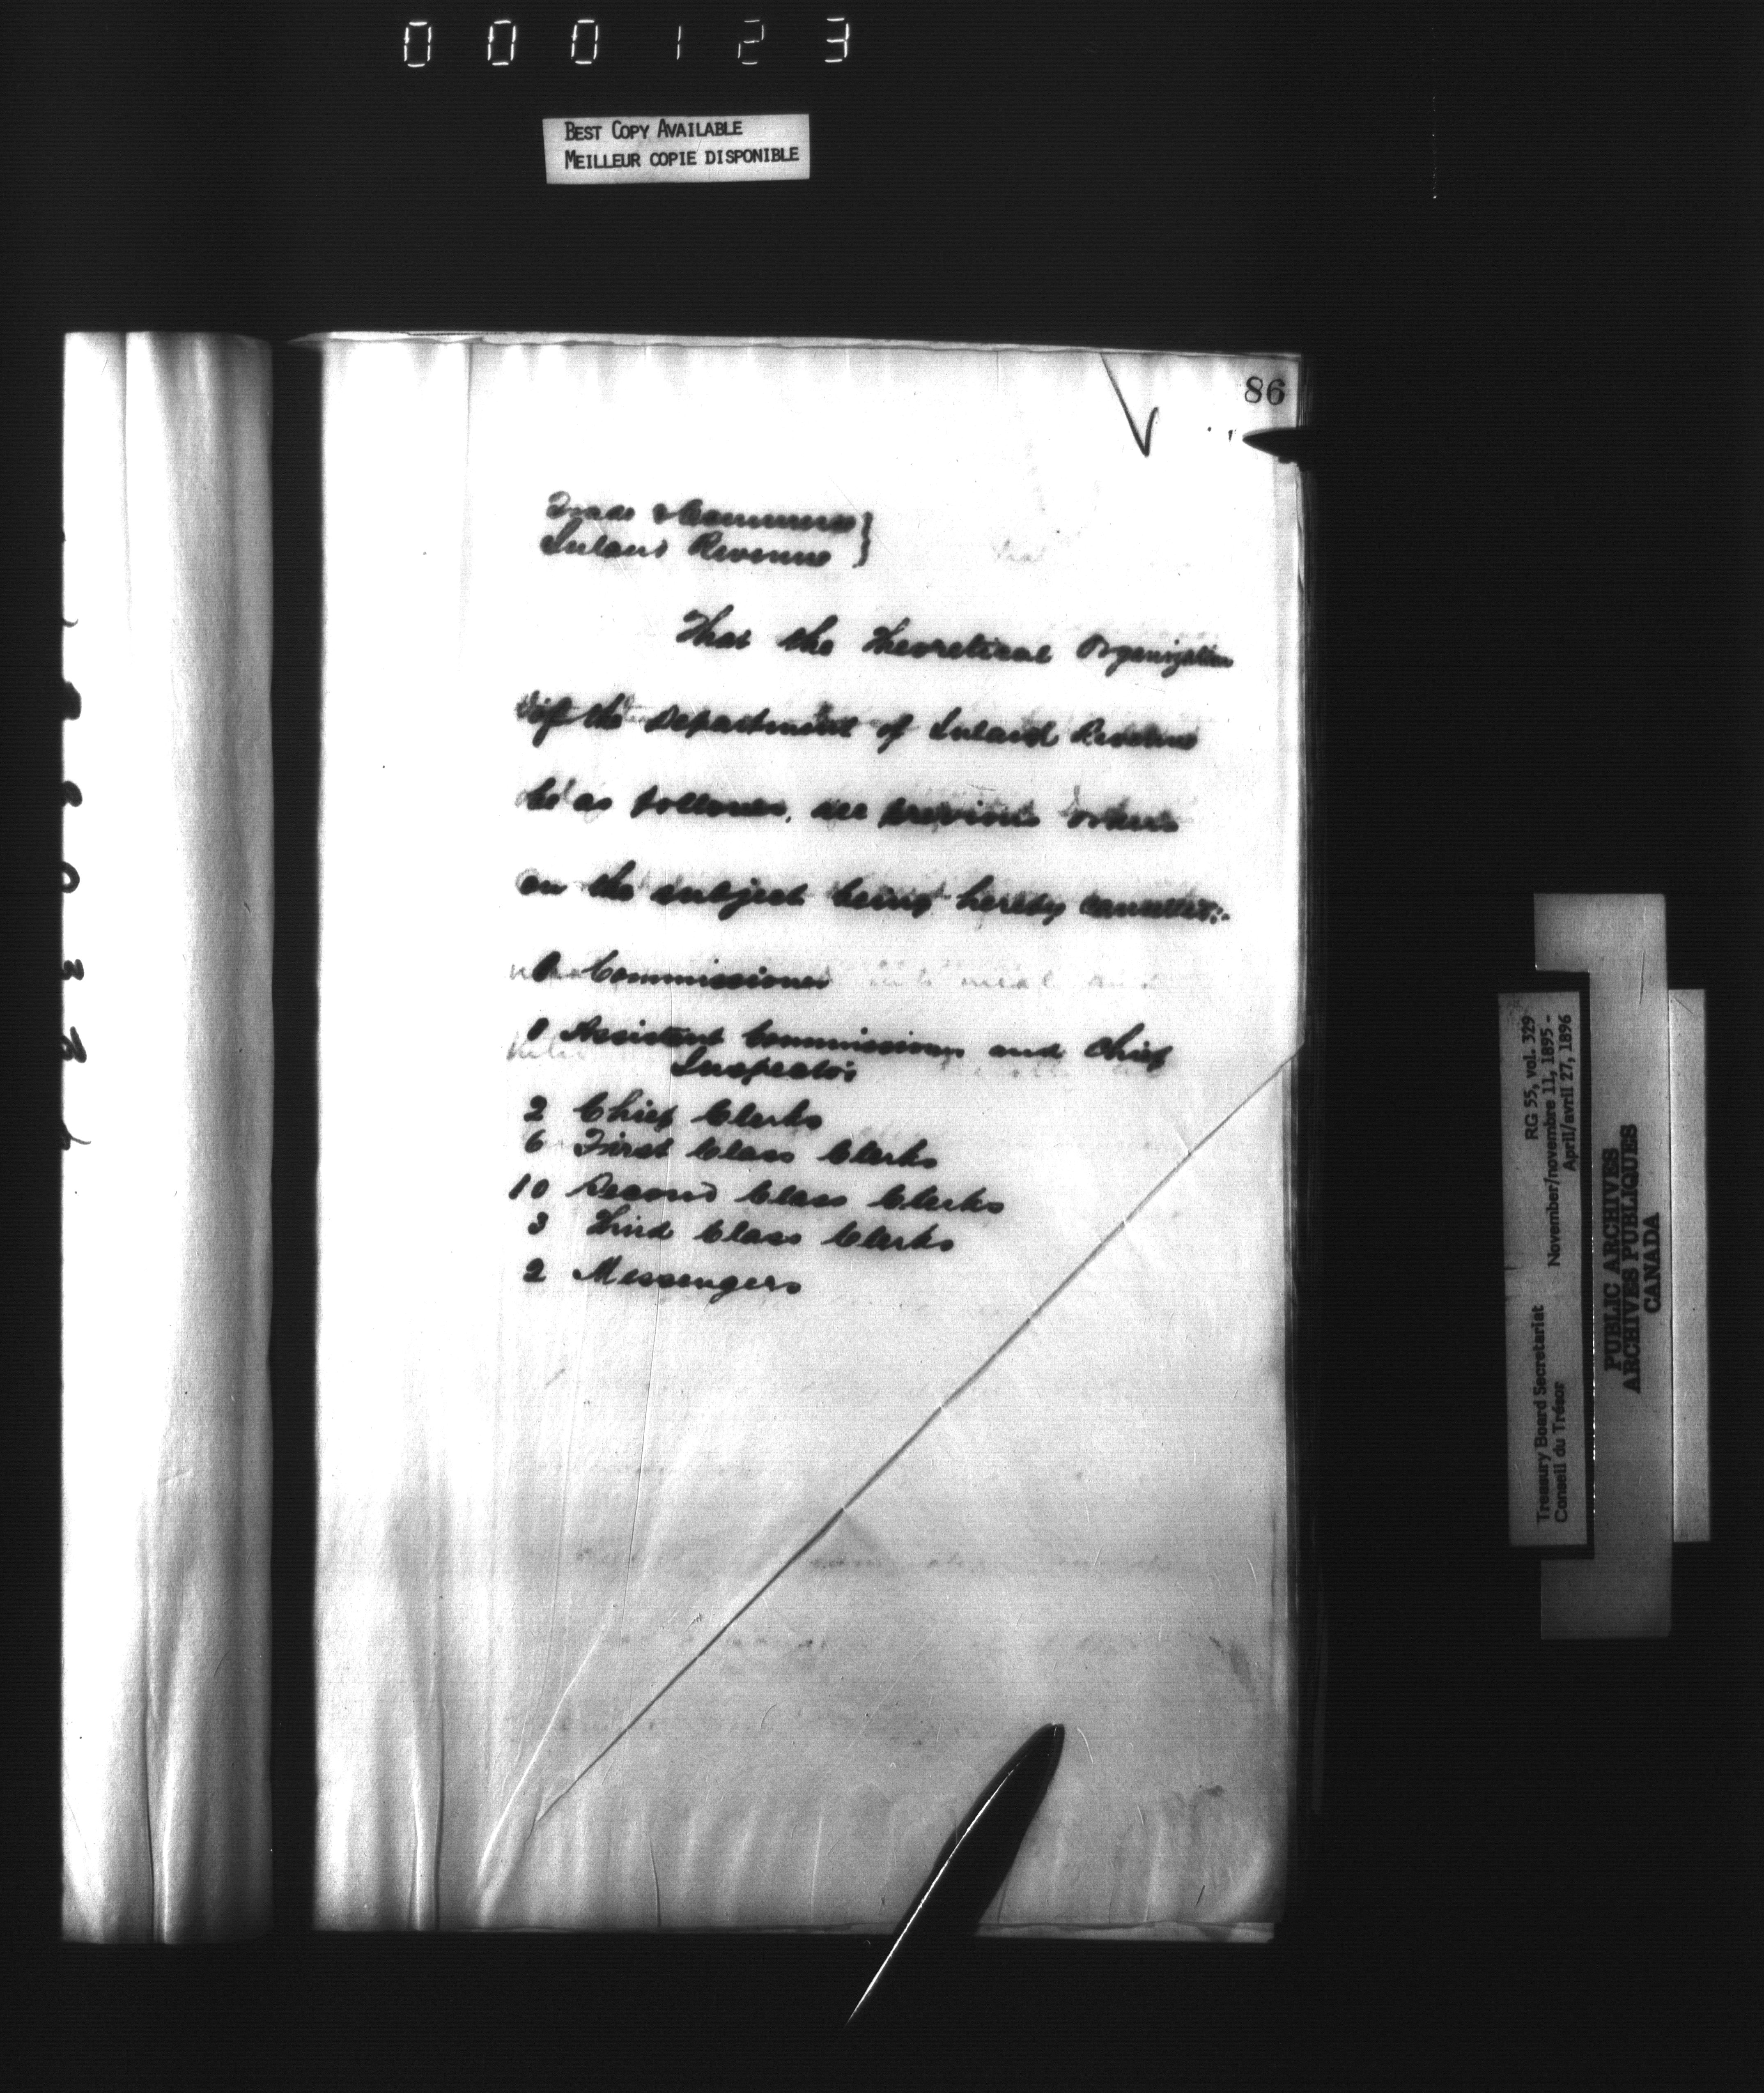 000123
BEST COPY AVAILABLE
MEILLEUR COPIE DISPONIBLE
86
Trade & Commerce }
Inland Revenue }
That the Theoretical Organization
of the Department of Inland Revenue
be as follows, all previous Orders
on the subject being hereby cancelled:-
1 Commissioner
1 Assistant Commissioner and Chief
Inspector
2 Chief Clerks
6 First Class Clerks
10 Second Class Clerks
3 Third Class Clerks
2 Messengers
Treasury Board Secretariat RG 55, vol. 329
Conseil du Trésor November/novembre 11, 1895 -
April/avril 27, 1896
PUBLIC ARCHIVES
ARCHIVES PUBLIQUES
CANADA